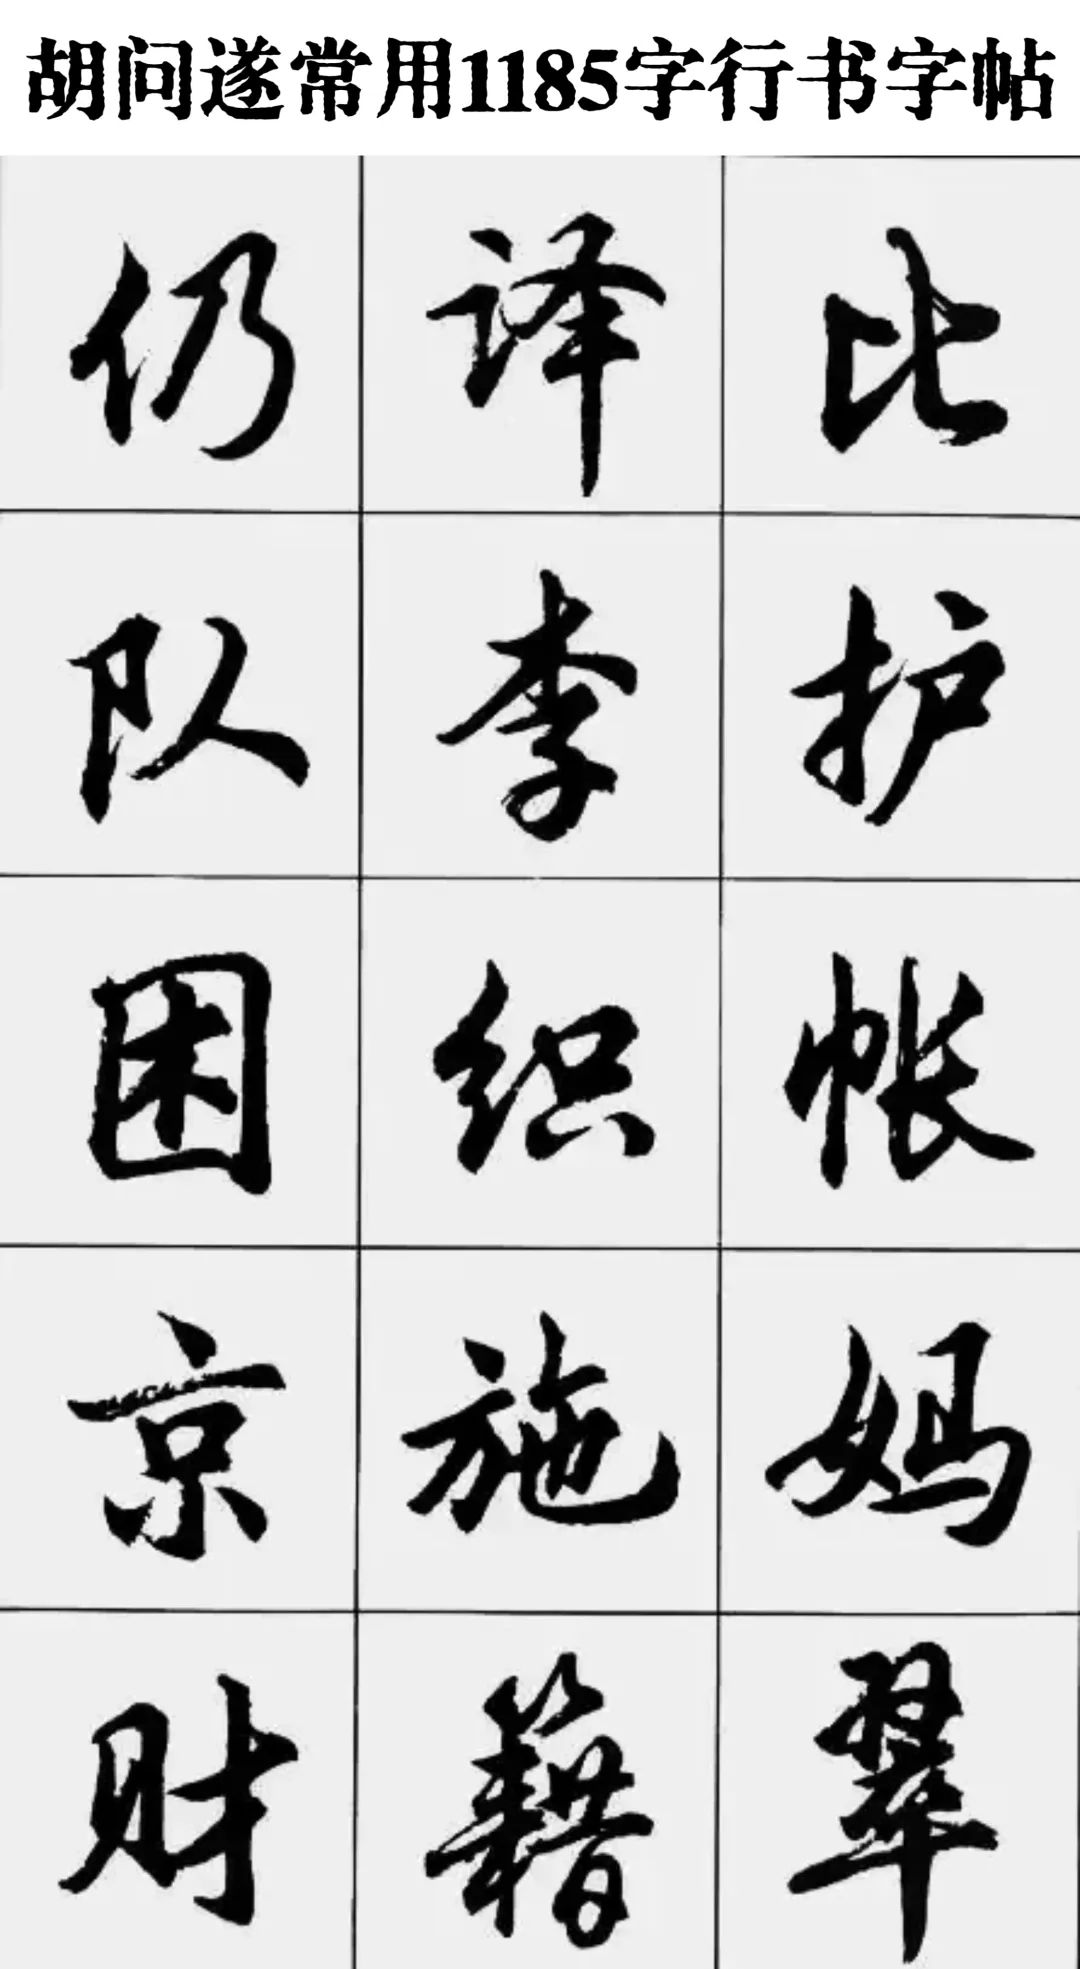 胡问遂常用1185字行书字帖
仍 译 比
队 李 护
困 织 帐
京 施 妈
财 籍 翠